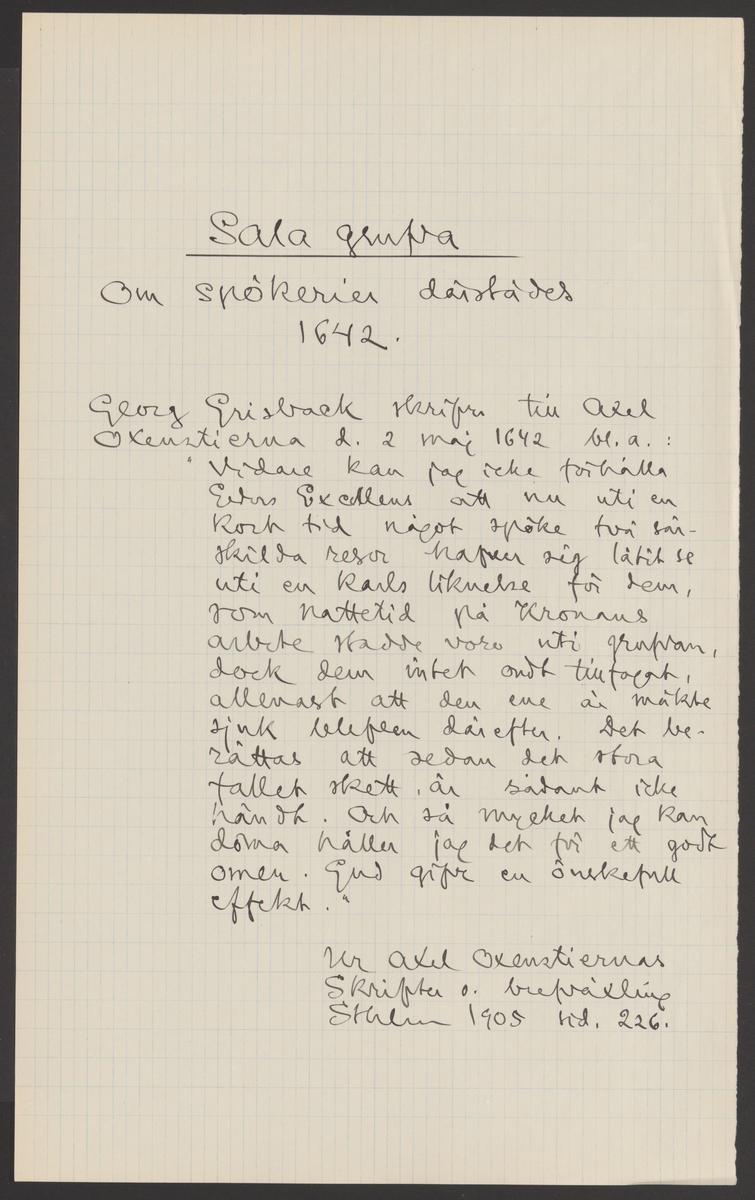 Sala grufva
Om spökerier därstädes
1642.
Georg Grisback skrifver till Axel
Oxenstierna d. 2 maj 1642 bl. a. :
"Vidare kan jag icke förhålla
Eders Excellens att nu uti en
kort tid något spöke två sär-
skilda resor hafver sig låtit se
uti en karls liknelse för dem,
som nattetid på Kronans
arbete stadde voro uti grufvan,
dock dem intet ondt tillfogat,
allenast att den ene är mäkte
sjuk blefven därefter. Det be-
rättas att sedan det stora
fallet skett, är sådant icke
händt. Och så mycket jag kan
döma håller jag det för ett godt
omen. Gud gifve en önskefull
effekt."
Ur Axel Oxenstiernas
Skrifter o. brefväxling
Sthlm 1905 sid. 226.